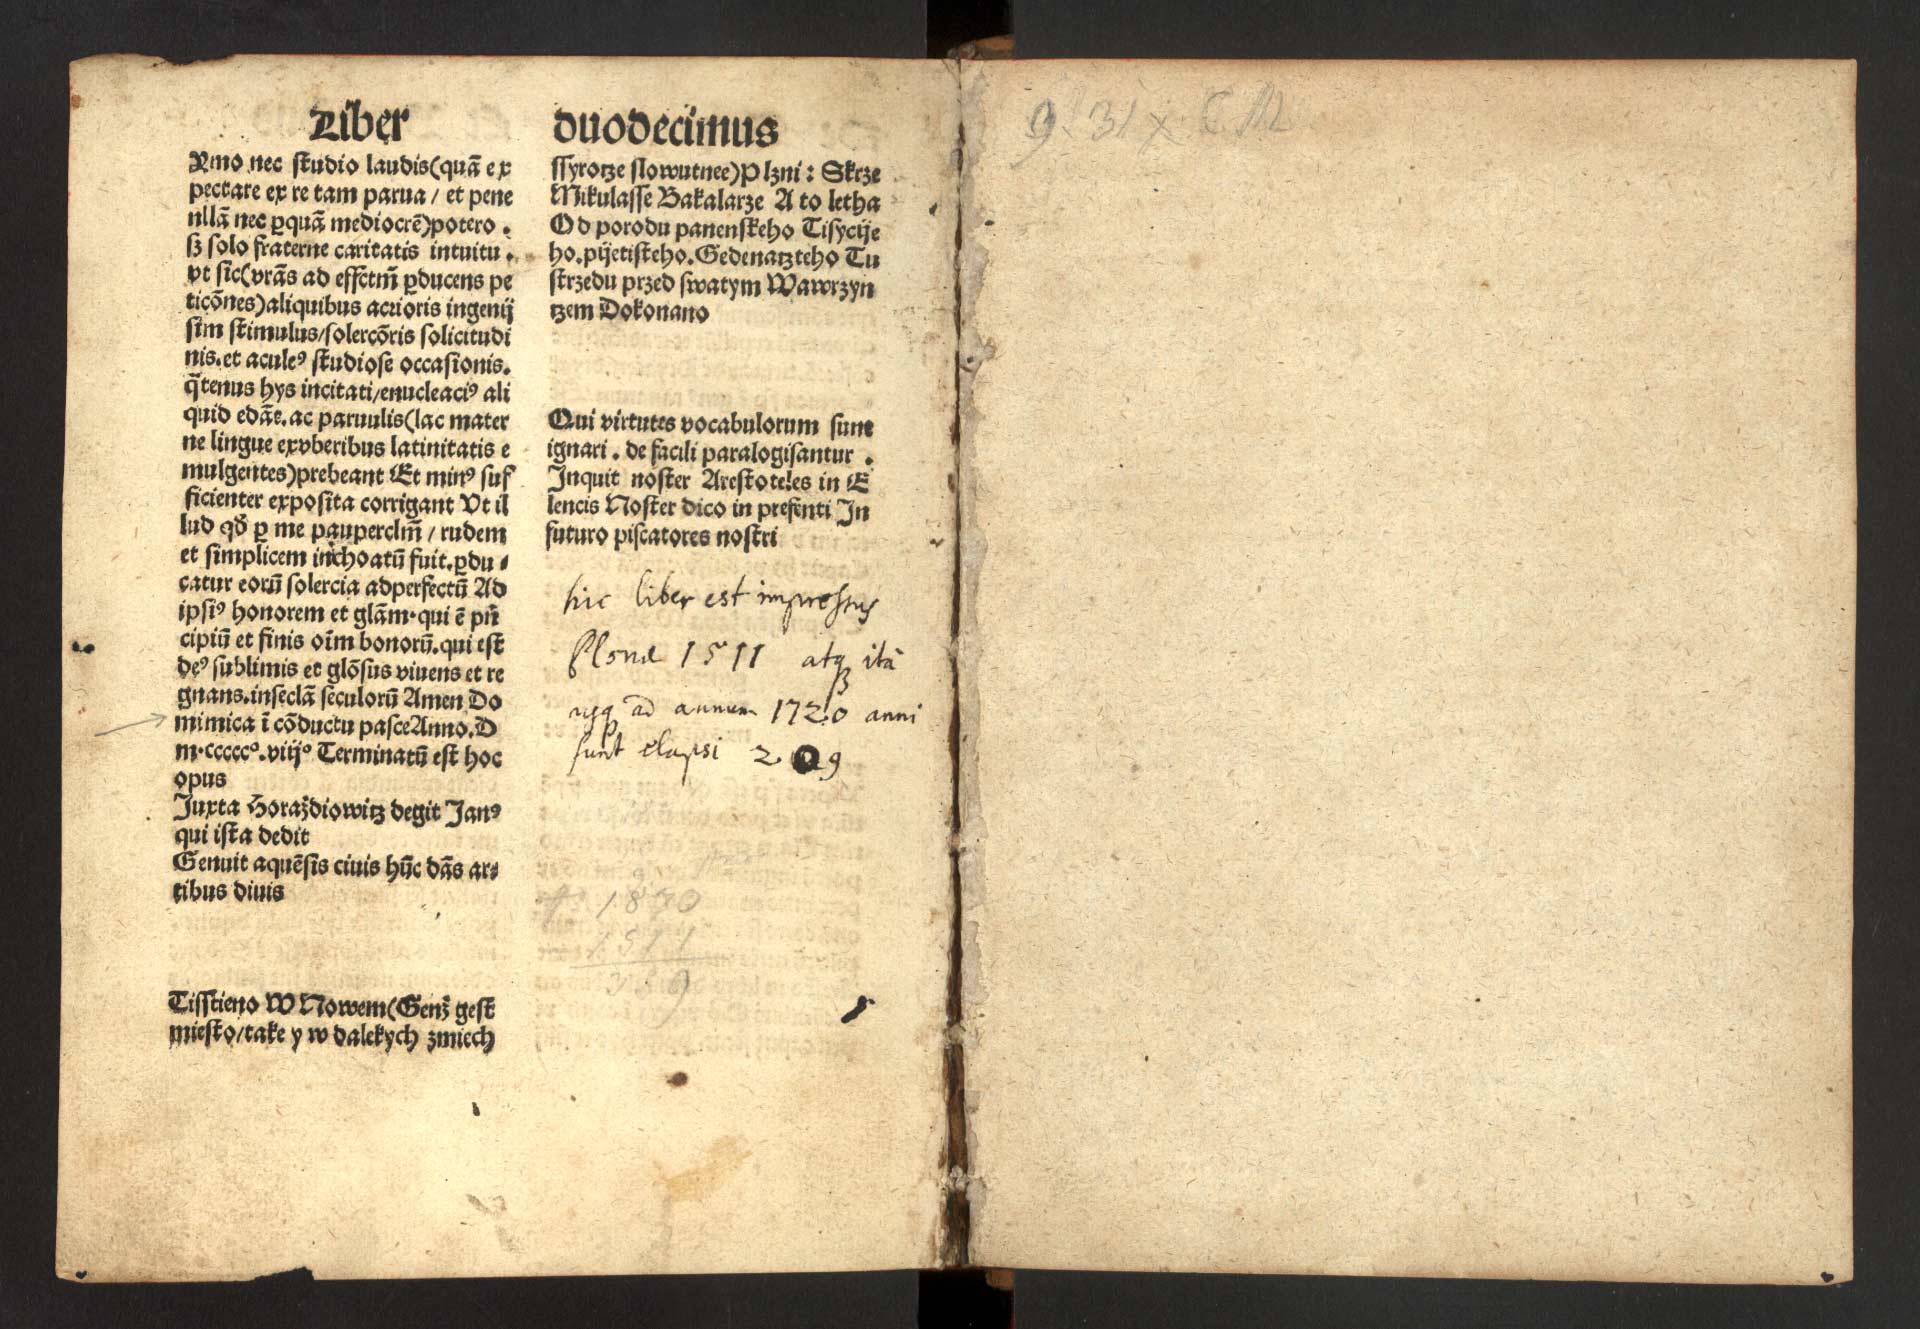 Liber duodecimus
Xmo nec studio laudis(quã ex
pectare ex re tam parua / et pene
nllã nec ꝑquã mediocrẽ)potero .
sꝫ solo fraterne caritatis intuitu .
vt sic(vrãs ad effctm̃ ꝑducens pe
ticõnes)aliquibus acrioris ingenij
sim stimulus/solercõris solicitudi
nis.et aculeꝰ studiose occasionis.
q̃tenus hys incitati/enucleaciꝰ ali
quid edãt.ac paruulis(lac mater
ne lingue exvberibus latinitatis e
mulgentes)prebeant Et minꝰ suf
ficienter exposita corrigant Vt il
lud qď ꝑ me pauperclm̃ / rudem
et simplicem inchoatũ fuit.ꝑdu⸗
catur eorũ solercia adperfectũ Ad
ipsiꝰ honorem et glãm.qui ẽ pñ
cipiũ et finis oĩm bonorũ.qui est
deꝰ sublimis et glõsus viuens et re
gnans.inseclã seculorũ Amen Do
mimica ĩ cõductu pasceAnno.D
m.cccccº.viijº Terminatũ est hoc
opus
Juxta Horaždiowitz degit Janꝰ
qui ista dedit
Genuit aquẽsis ciuis hũc dãs ar⸗
tibus diuis
Tisstieno W Nowem(Genž gest
miesto/take y w dalekych zmiech
ssyrotze slowutnee)Plzni : Skrze
Mikulasse Bakalarze A to letha
Od porodu panenskeho Tisycije
ho.pijetisteho.Gedenatzteho Tu
strzedu przed swatym Wawrzyn
tzem Dokonano
Qui virtutes vocabulorum sunt
ignari . de facili paralogisantur .
Inquit noster Arestoteles in E
lencis Noster dico in presenti In
futuro piscatores nostri
hic liber est impressus
Plsnæ 1511 atqꝫ ità
usqꝫ ad annum 1720 anni
sunt elapsi 209
1830
1511
319
9. 31 x